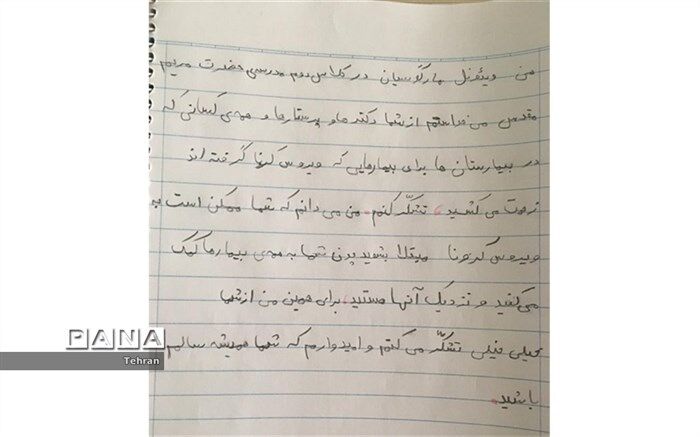 من ویئونل مارگوسیان در کلاس دوم مدرسی حضرت مریم
مقدس می خواستم از شما دکتر ها و پرستارها و همه ی کسانی که
در بیمارستان ها برای بیمارهایی که ویروس کرنا گرفته اند
زحمت می کشید، تشکّر کنم. من می دانم که شما ممکن است به
ویروس کرونا مبتلا بشوید چون شما به همه ی بیمارها کمک
می کنید و نزدیک آنها هستید، برای همین من از شما
خیلی خیلی تشکّر می کنم و امیدوارم که شما همیشه سالم
باشید.
PANA
Tehran